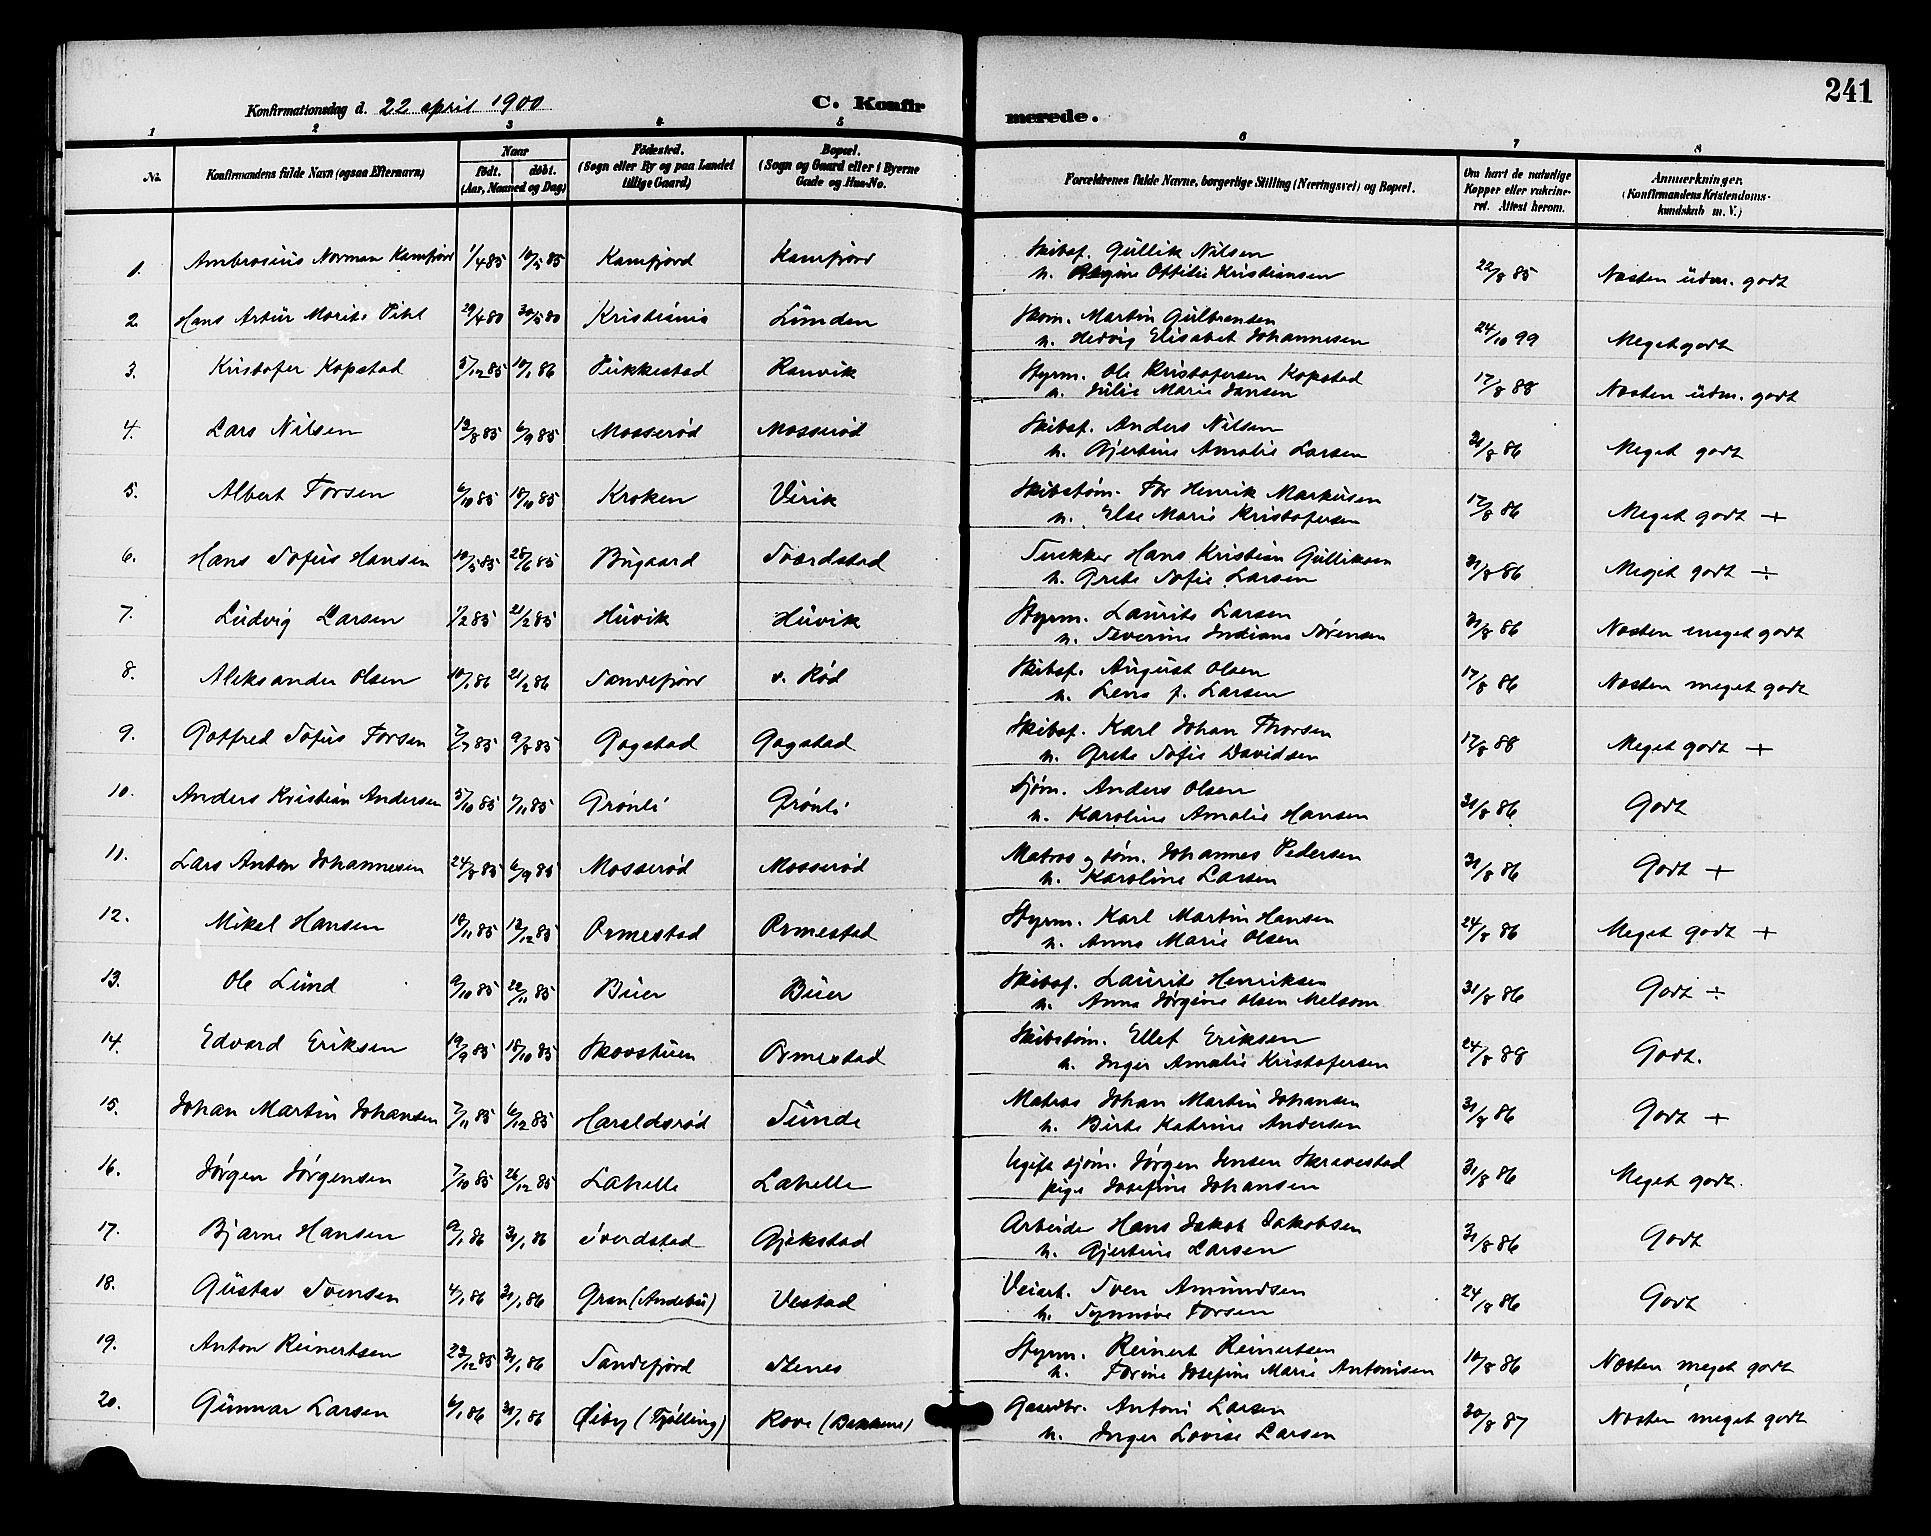 Konfirmationsdag d. 22 april 1900
C. Konfir merede.
241
1 2 3 4 5 6 7 8
No. Konfirmandens fulde Navn (ogsaa Efternavn) Naar født. døbt. (Aar, Maaned og Dag) Fødested. (Sogn eller By og paa Landet tillige Gaard) Bopæl. (Sogn og Gaard eller i Byerne Gade og Hus-No. Forældrenes fulde Navne, borgerlige Stilling (Næringsvei) og Bopæl. Om havt de naturlige Kopper eller vakcineret. Attest herom. Anmærkninger. (Konfirmandens Kristendomskundskab m. V.)
1. Ambrosius Norman Kamfjord 1/4 85 10/5 85 Kamfjord Kamfjord Skibsf. Gullik Nilsen
h. Regine Ottilie Kristiansen 22/8 85 Næsten udm. godt
2. Hans Artur Morits Pihl 29/4 80 30/5 80 Kristiania Lunden Skom. Martin Gulbrandsen
h. Hedvig Elisabet Johannesen 24/10 99 Meget godt
3. Kristofer Kopstad 5/12 85 10/1 86 Pukkestad Ranvik Styrm. Ole Kristofersen Kopstad
h. Julie Marie Jansen 17/8 88 Næsten udm. godt
4. Lars Nilsen 12/8 85 6/9 85 Mosserød Mosserød Skibsf. Anders Nilsen
h. Gjertine Amalie Larsen 31/8 86 Meget godt
5. Albert Torsen 6/10 85 18/10 85 Kroken Virik Skibstøm. Tor Henrik Markusen
h. Else Marie Kristofersen 17/8 86 Meget godt +
6. Hans Sofus Hansen 10/5 85 28/6 85 Bugaard Sverdstad Snekker Hans Kristian Gulliksen
h. Grete Sofie Larsen 31/8 86 Meget godt ÷
7. Ludvig Larsen 1/2 85 21/2 85 Huvik Huvik Styrm. Laurits Larsen
h. Severine Indiane Sørensen 31/8 86 Næsten meget godt
8. Aleksander Olsen 10/1 86 21/2 86 Sandefjord v. Rød Skibsf. August Olsen
h. Lena f. Larsen 17/8 86 Næsten meget godt
9. Gotfred Sofus Torsen 7/7 85 9/8 85 Gogstad Gogstad Skibsf. Karl Johan Thorsen
h. Grete Sofie Davidsen 17/8 88 Meget godt +
10. Anders Kristian Andersen 5/10 85 1/11 85 Grønli Grønli Sjøm. Anders Olsen
h. Karoline Amalie Hansen 31/8 86 Godt
11. Lars Anton Johannesen 24/8 85 6/9 85 Mosserød Mosserød Matros og tøm. Johannes Pedersen
h. Karoline Larsen 31/8 86 Godt +
12. Mikal Hansen 18/11 85 13/12 85 Ormestad Ormestad Styrm. Karl Martin Hansen
h. Anna Marie Olsen 24/8 86 Meget godt +
13. Ole Lund 9/10 85 22/11 85 Buer Buer Skibsf. Laurits Henriksen
h. Anna Jørgine Olsen Melsom 31/8 86 Godt ÷
14. Edvard Eriksen 19/9 85 18/10 85 Skovstuen Ormestad Skibstøm. Ellef Eriksen
h. Inger Amalie Kristofersen 24/8 88 Godt.
15. Johan Martin Johansen 7/11 85 6/12 85 Haraldsrød Sunde Matros Johan Martin Johansen
h. Birte Katrine Andersen 31/8 86 Godt +
16. Jørgen Jørgensen 7/10 85 26/12 85 Lahelle Lahelle Ugift sjøm. Jørgen Jensen Skravestad
pige Josefine Johansen 31/8 86 Meget godt.
17. Bjarne Hansen 9/1 86 31/1 86 Sverdstad Gjekstad Arbeider Hans Jakob Jakobsen
h. Gjertine Larsen 31/8 86 Godt
18. Gustav Svensen 4/1 86 31/1 86 Gran (Andebu) Vestad Veiarb. Sven Amundsen
h. Synnøve Torsen 24/8 86 Godt
19. Anton Reinertsen 23/12 85 31/1 86 Sandefjord Stenes Styrm. Reinert Reinertsen
h. Torine Josefine Marie Antonisen 10/8 86 Næsten meget godt
20. Gunnar Larsen 6/1 86 31/1 86 Øiby (Tjølling) Rove (Bakkene) Gaardbr. Anton Larsen
h. Inger Lovise Larsen 30/8 87 Næsten meget godt